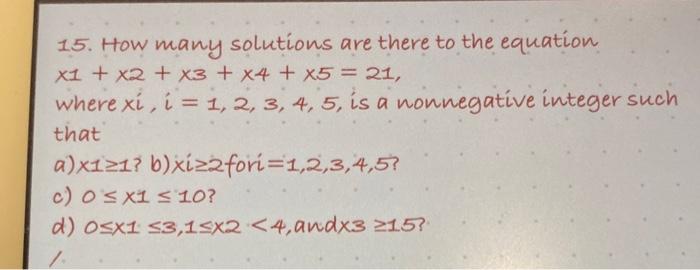 15. How many solutions are there to the equation
x1 + x2 + x3 + x4 + x5 = 21,
where xi, i = 1, 2, 3, 4, 5, is a nonnegative integer such
that
a)x1≥1? b)xi≥2fori=1,2,3,4,5?
c) 0 ≤ x1 ≤ 10?
d) 0≤x1 ≤3,1≤x2 <4,andx3 ≥15?
/.